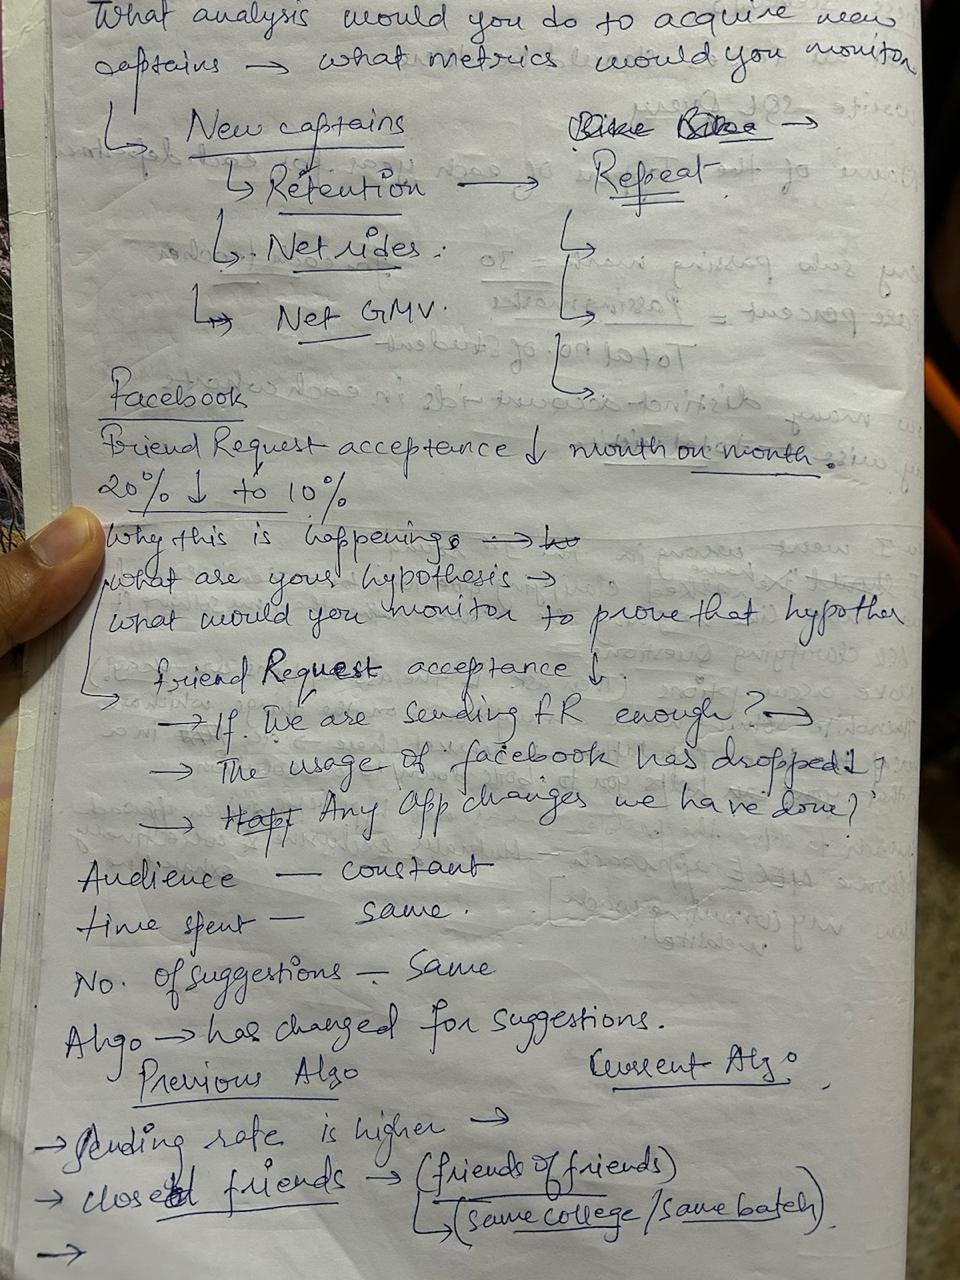 What analysis would you do to acquire new
captains → what metrics would you monitor
↳ New captains
Bike Bike →
↳ Retention → Repeat
↳ Net rides.
↳ Net GMV.
Facebook
Friend Request acceptance ↓ month on month.
20% ↓ to 10%
Why this is happening →
what are your hypothesis →
what would you monitor to prove that hypother
friend Request acceptance ↓.
→ If we are sending FR enough? →
→ The usage of facebook has dropped ↓ ?
→ Any App changes we have done?
Audience — constant
time spent — same.
No. of suggestions — Same
Algo → has changed for suggestions.
Previous Algo
Current Algo
→ Sending rate is higher →
→ closed friends → (friends of friends)
↳ (same college / same batch)
→